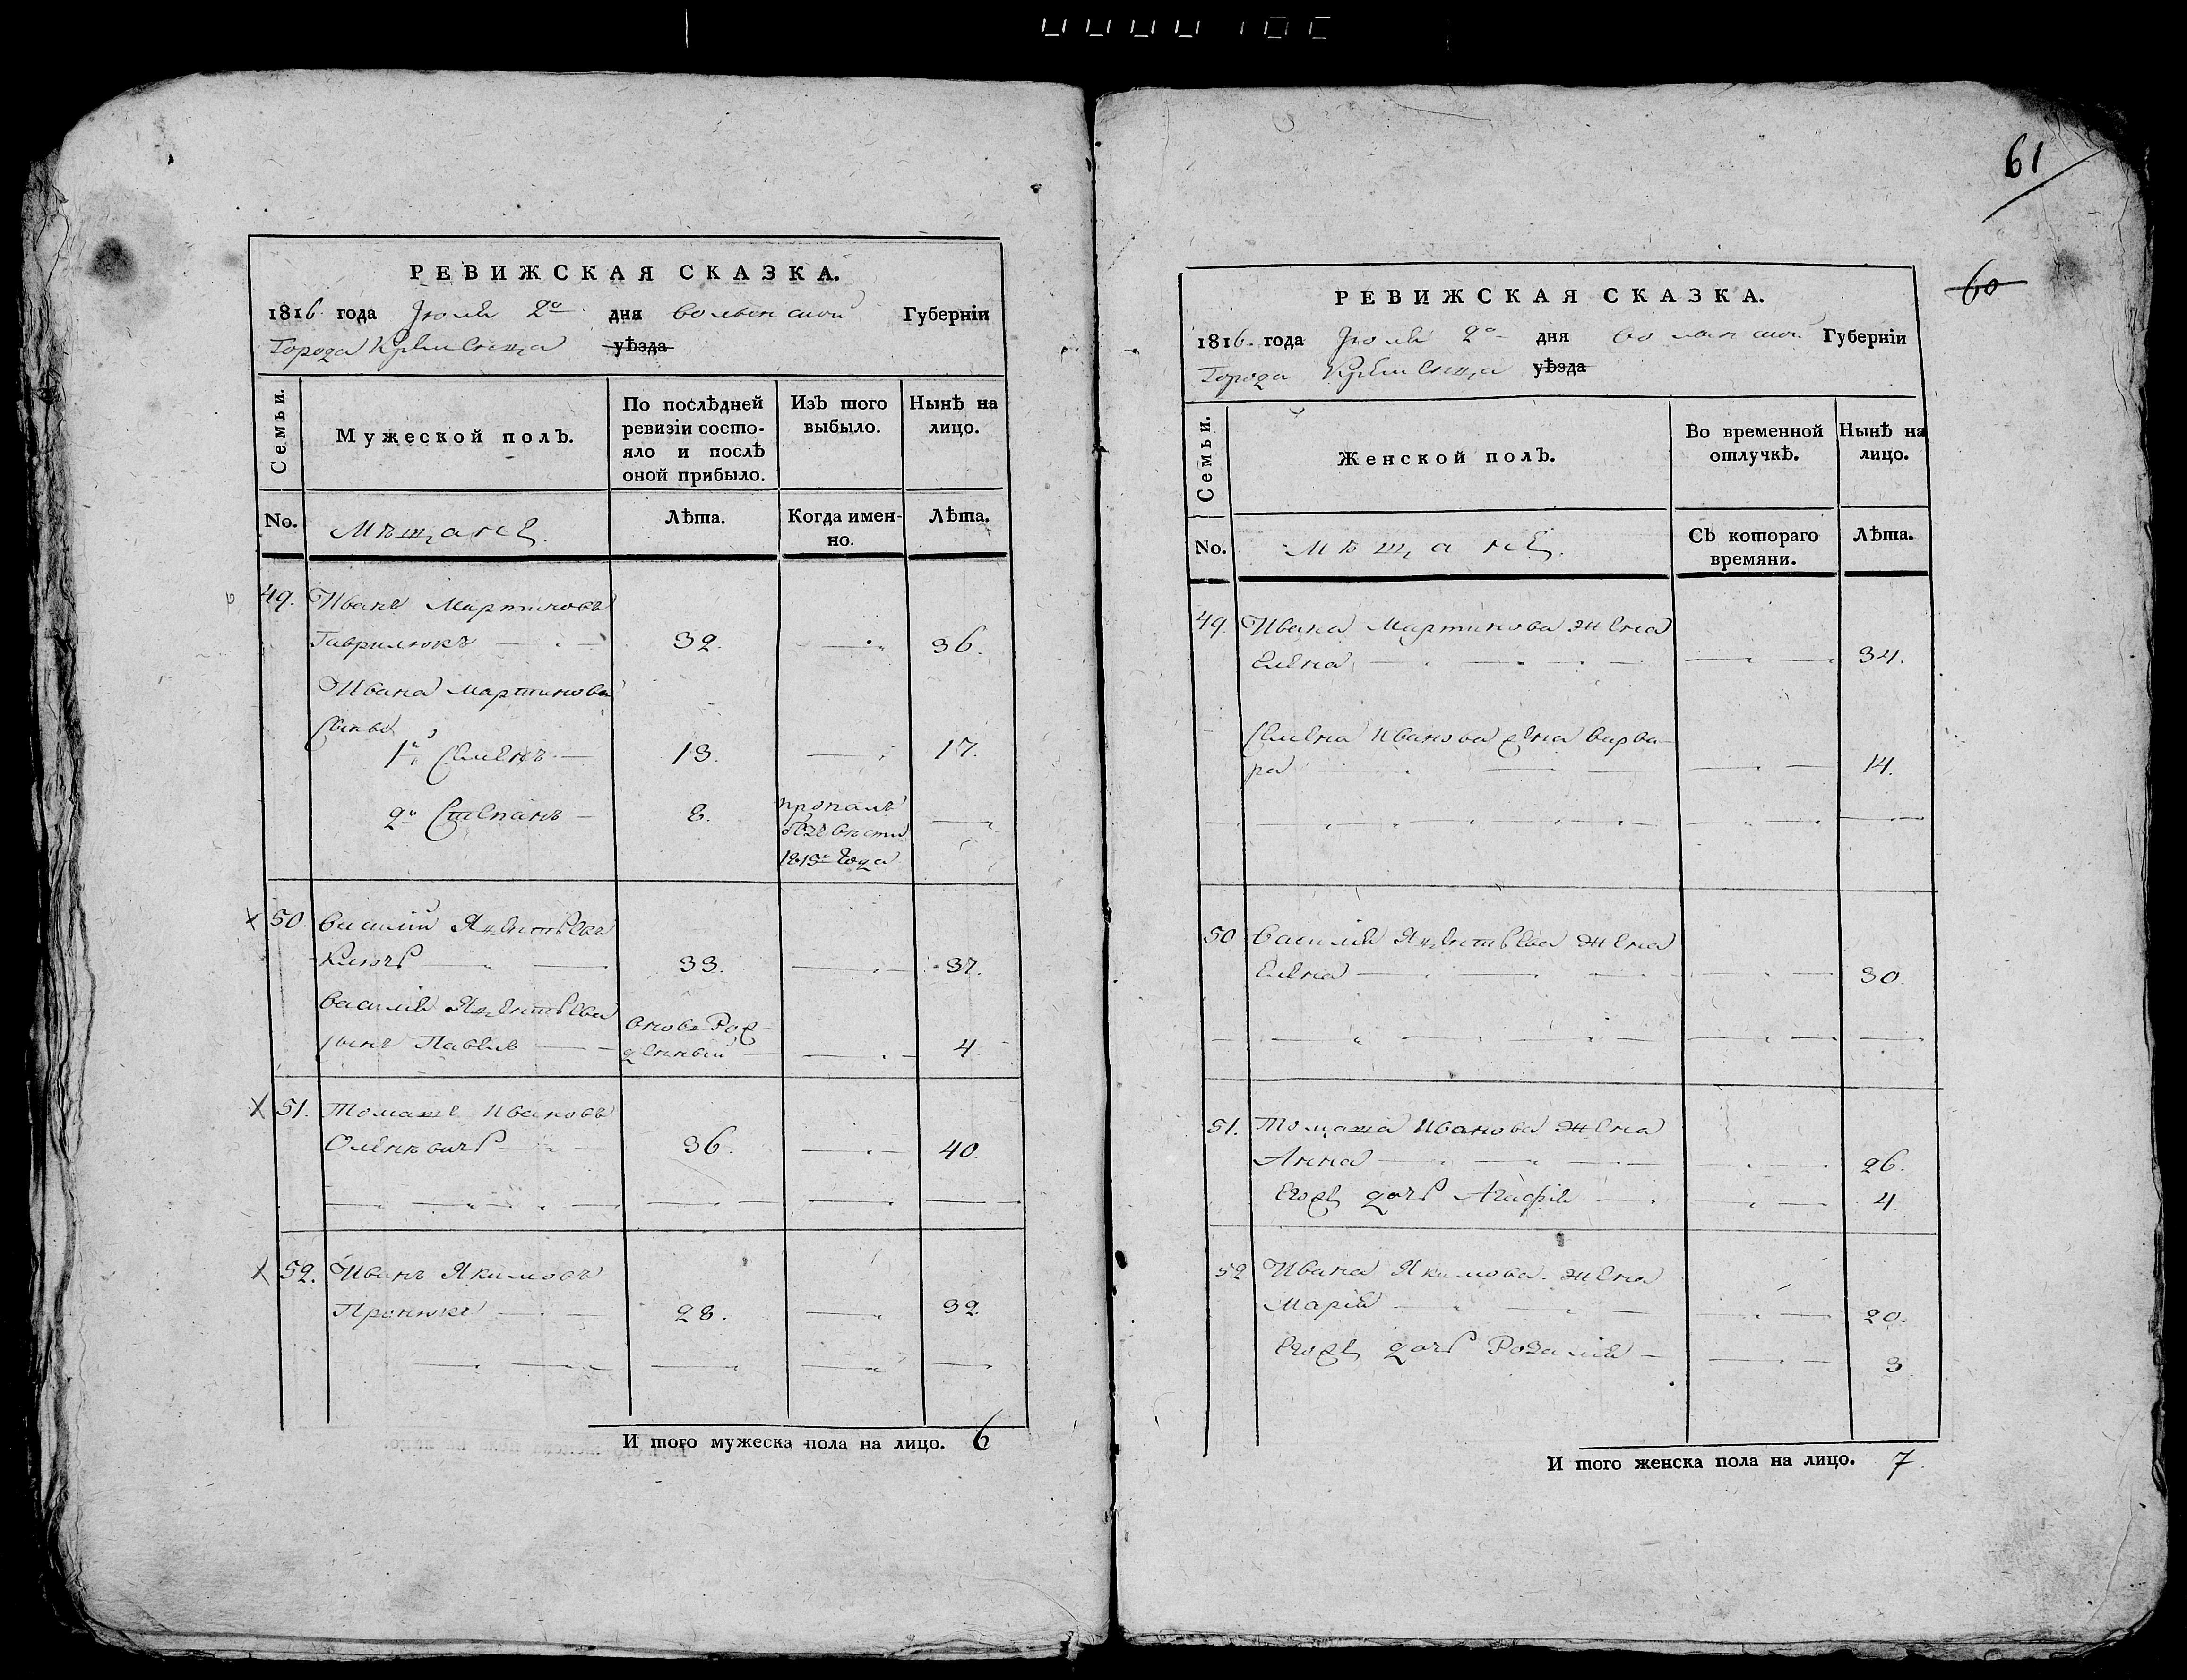 61
60
РЕВИЖСКАЯ СКАЗКА.
1816 года Июля 2го дня Волынской Губерніи
Города Кременца уѣзда
Семьи.
Мужеской полъ.
По послѣдней ревизіи состо-
яло и послѣ
оной прибыло.
Изъ того
выбыло.
Нынѣ на
лицо.
No.
Мѣщане
Лѣта.
Когда имен-
но.
Лѣта.
49. Иванъ Мартиновъ
Гаврилюкъ 32. 36.
Ивана Мартинова
сыновья
1й Семенъ 13. 17.
2й Степанъ 8. пропалъ
безъ вѣсти
года
50. Василій
33. 37.
Василія
сынъ Павелъ вновь рож-
денный 4
51. Томашъ Ивановъ
36. 40
52. Иванъ Якимовъ
Пронюкъ 28. 32.
И того мужеска пола на лицо. 6
РЕВИЖСКАЯ СКАЗКА.
1816 года Июля 2го дня Волынской Губерніи
Города Кременца уѣзда
Семьи.
Женской полъ.
Во временной
отлучкѣ.
Нынѣ на
лицо.
No.
Мѣщане.
Съ котораго
времяни.
Лѣта.
49. Ивана Мартинова жена
Елена 34.
Семена Иванова жена Варва-
ра 14.
50 Василія жена
Елена 30.
51. Томаша Иванова жена
Анна 26.
Егожъ дочь Агафія 4
52 Ивана Якимова жена
Марія 20.
Егожъ дочь Розалія 3
И того женска пола на лицо. 7.